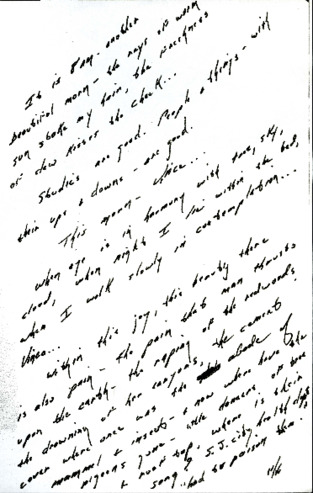 It is 8 am. another
beautiful morn - the rays of warm
sun stroke my hair, the freshness
of dew kisses the cheek...
Studies are good. People & things - with
their ups & downs - are good.
This morn - once...
when eye is in harmony with tree, sky,
cloud, when nights I lie within the bed,
when I walk slowly in contemplation...
within this joy, this beauty there
is also pain - the pain that man thrusts
upon the earth - the raping of the redwoods
the drowning of her canyons, the cement
cover where once was the abode of
mammal & insect - & now where have the
pigeons gone - the dancers of tree
& roof top, where is their
song? S.J. city health dept
had to poison them.